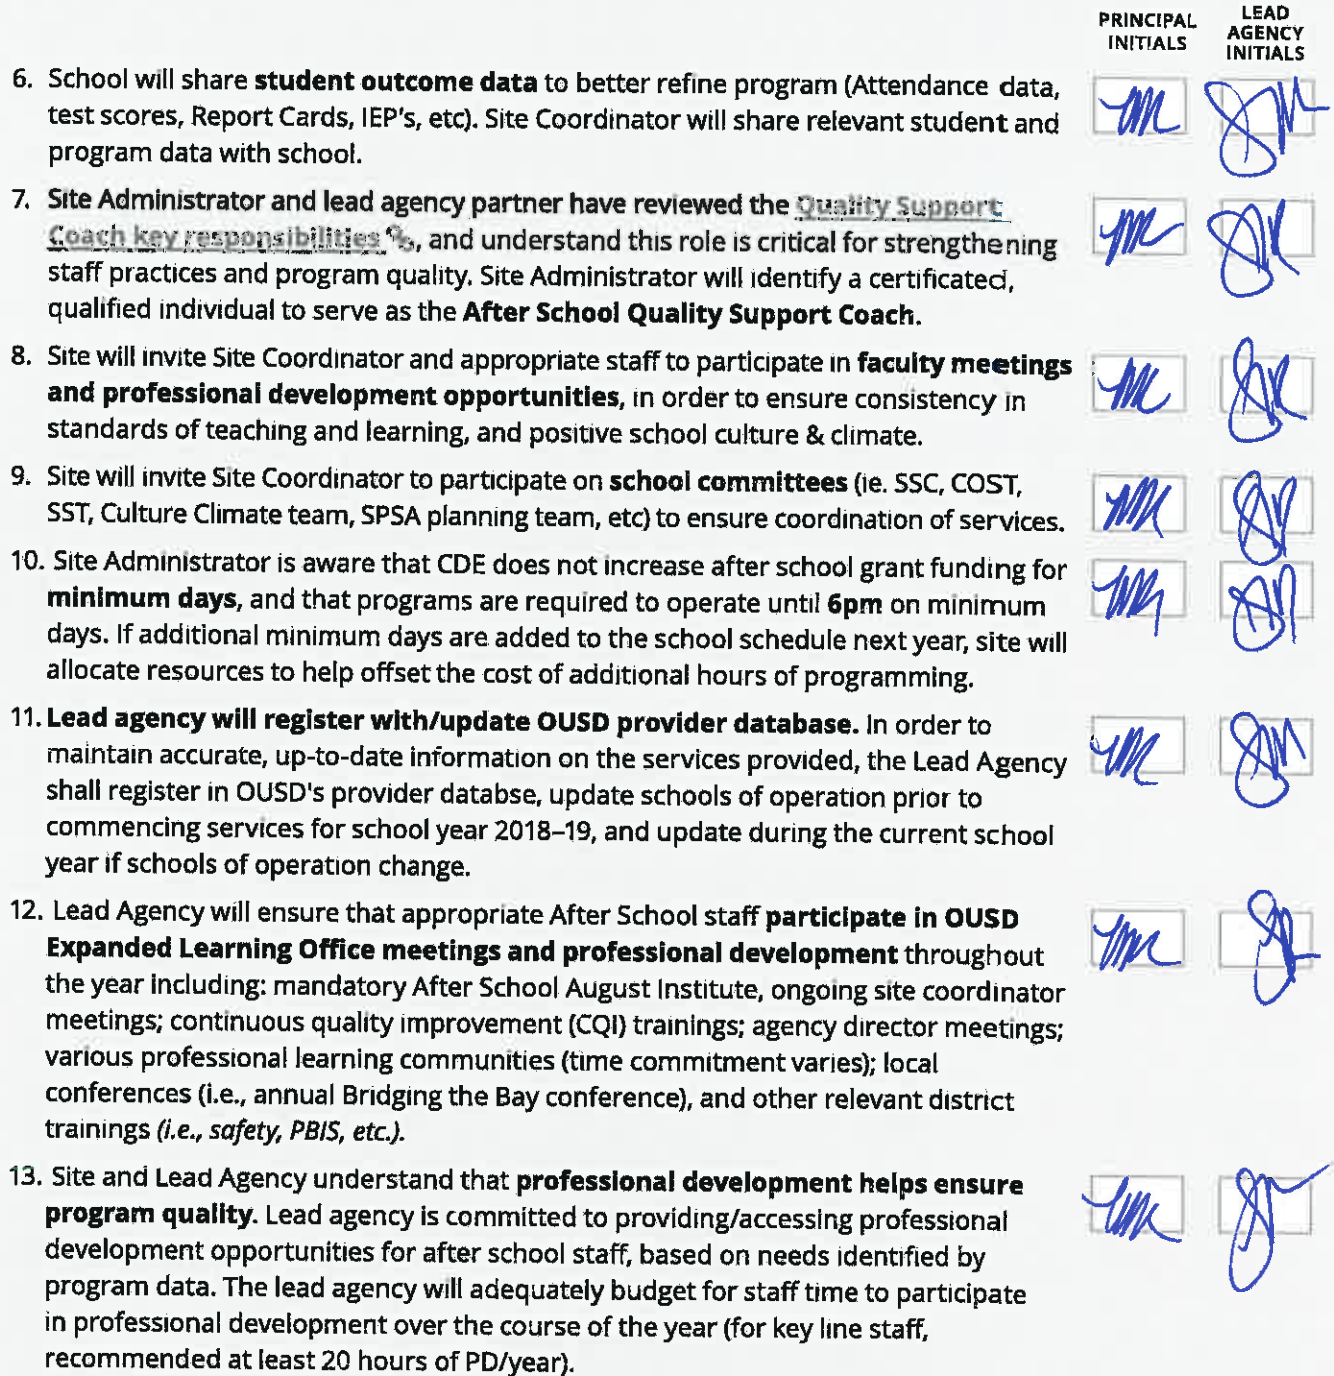 PRINCIPAL INITIALS
LEAD AGENCY INITIALS
6. School will share student outcome data to better refine program (Attendance data,
test scores, Report Cards, IEP's, etc). Site Coordinator will share relevant student and
program data with school.
7. Site Administrator and lead agency partner have reviewed the Quality Support
Coach key responsibilities, and understand this role is critical for strengthening
staff practices and program quality. Site Administrator will identify a certificated,
qualified individual to serve as the After School Quality Support Coach.
8. Site will invite Site Coordinator and appropriate staff to participate in faculty meetings
and professional development opportunities, in order to ensure consistency in
standards of teaching and learning, and positive school culture & climate.
9. Site will invite Site Coordinator to participate on school committees (ie. SSC, COST,
SST, Culture Climate team, SPSA planning team, etc) to ensure coordination of services.
10. Site Administrator is aware that CDE does not increase after school grant funding for
minimum days, and that programs are required to operate until 6pm on minimum
days. If additional minimum days are added to the school schedule next year, site will
allocate resources to help offset the cost of additional hours of programming.
11. Lead agency will register with/update OUSD provider database. In order to
maintain accurate, up-to-date information on the services provided, the Lead Agency
shall register in OUSD's provider databse, update schools of operation prior to
commencing services for school year 2018–19, and update during the current school
year if schools of operation change.
12. Lead Agency will ensure that appropriate After School staff participate in OUSD
Expanded Learning Office meetings and professional development throughout
the year including: mandatory After School August Institute, ongoing site coordinator
meetings; continuous quality improvement (CQI) trainings; agency director meetings;
various professional learning communities (time commitment varies); local
conferences (i.e., annual Bridging the Bay conference), and other relevant district
trainings (i.e., safety, PBIS, etc.).
13. Site and Lead Agency understand that professional development helps ensure
program quality. Lead agency is committed to providing/accessing professional
development opportunities for after school staff, based on needs identified by
program data. The lead agency will adequately budget for staff time to participate
in professional development over the course of the year (for key line staff,
recommended at least 20 hours of PD/year).